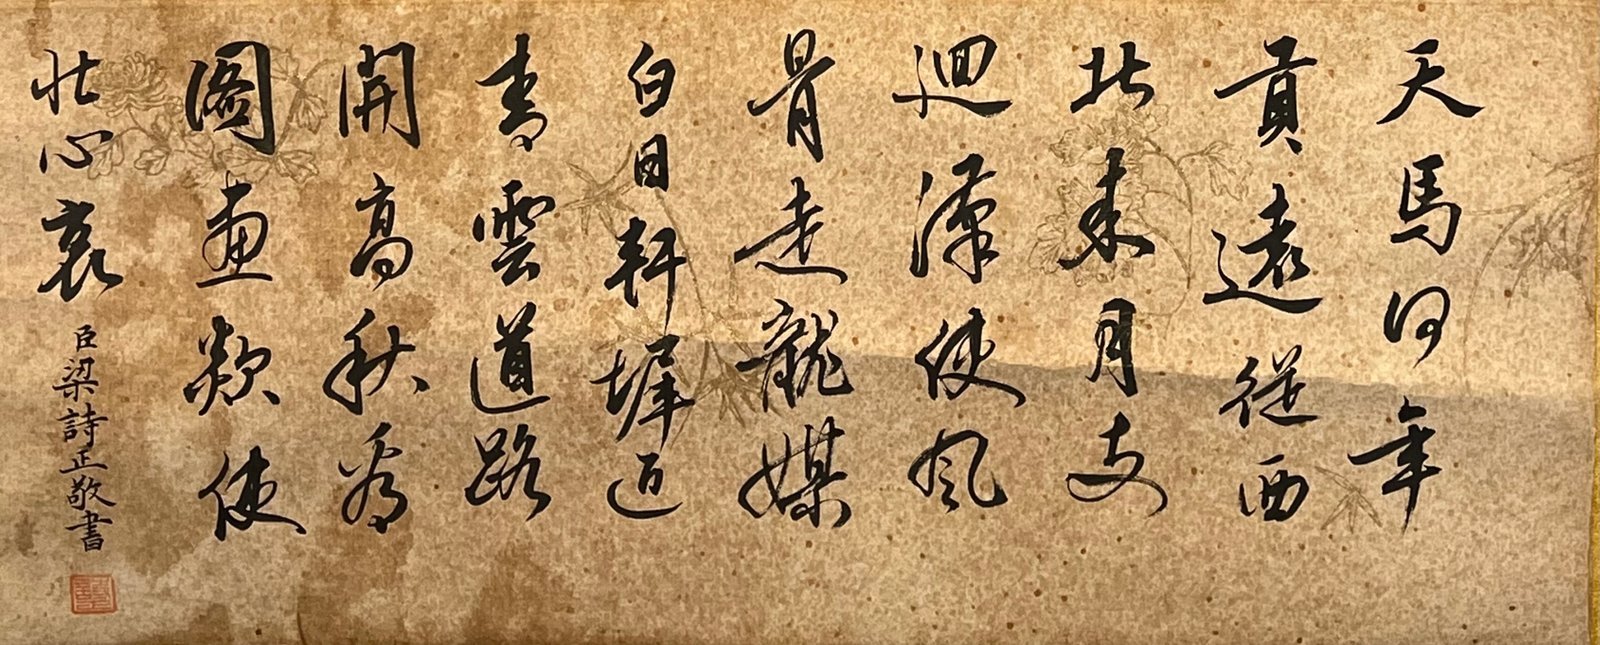 天馬何年
貢遠從西
北來月支
迴漢使風
骨走龍媒
白日軒墀近
青雲道路
開高秋看
圖畫欻使
壯心哀
臣梁詩正敬書